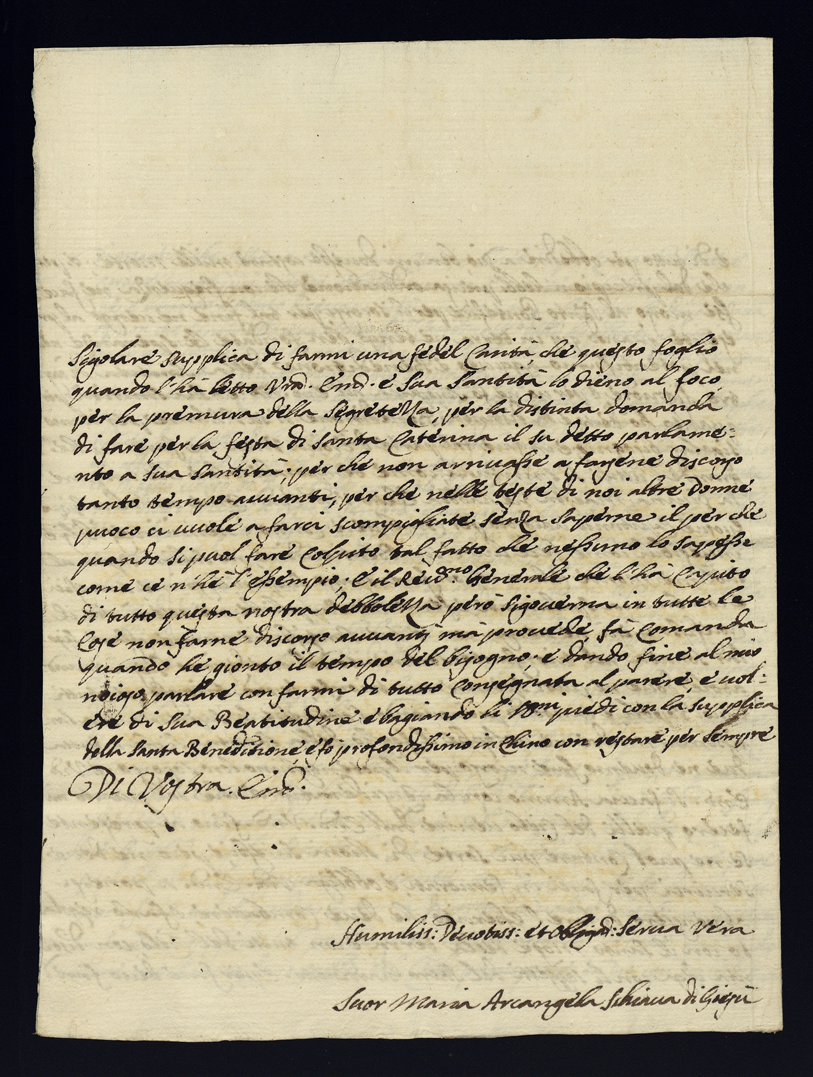 sigolare supplica di farmi una fedel Carità che questo foglio
quando l'hà letto Vra. Em.ª e Sua Santità lo dieno al foco
per la premura della segretezza, per la distinta domanda
di fare per la festa di Santa Caterina il su detto parlame=
nto a sua santità; per che non arrivasse a farsene discorso
tanto tempo avvanti, per che nelle teste di noi altre Donne
puoco ci vuole a farci scompigliate senza saperne il per che
quando si puol fare Colpito tal fatto che nessuno lo sapesse
come ce n'he l'essempio; e il Reverd.mo Generale che l'hà Capito
di tutto questa nostra debbolezza però si governa in tutte le
Cose non farne discorso avvanti mà provede, fà Comanda
quando he gionto il tempo del bisogno; e dando fine al mio
noioso parlare con farmi di tutto Consegnata al parere, e vol=
ere di Sua Beatitudine e bagiando li SS.mi piedi con la supplica
della Santa Beneditione e fò profondissimo inChino con restare per sempre
Di Vostra. Em.ª
Humiliss: Devotiss: et Obligat: Serva Vera
Suor Maria Arcangela Schiava di Giesù